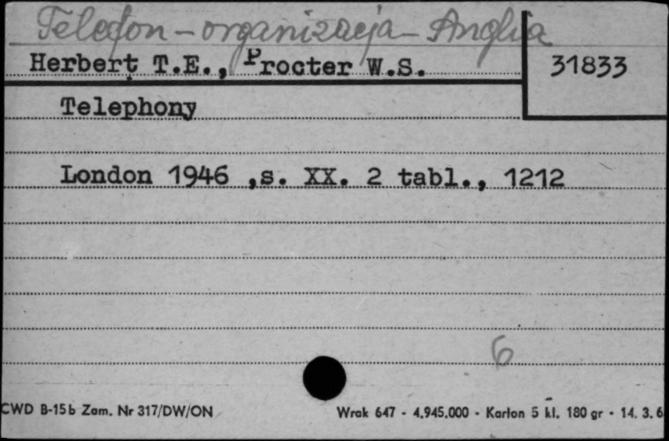 Telefon - organizacja - Anglia
Herbert T.E., Procter W.S. 31833
Telephony
London 1946 ,s. XX. 2 tabl., 1212
6
CWD B-15b Zam. Nr 317/DW/ON Wrak 647 - 4.945.000 - Karton 5 kl. 180 gr - 14. 3. 6